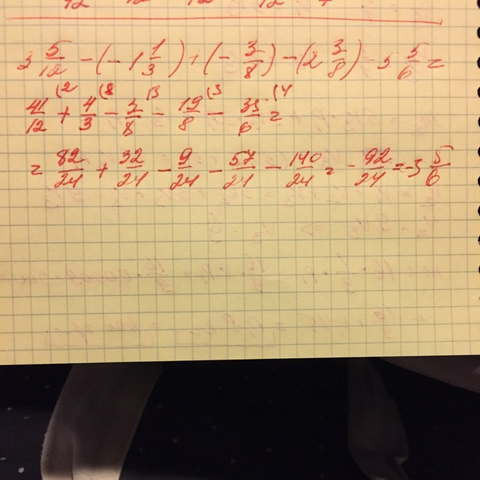 3 5/12 - (-1 1/3) + (-3/8) - (2 3/8) - 5 5/6 =
41/12 (2 + 4/3 (8 - 3/8 (3 - 19/8 (3 - 35/6 (4 =
= 82/24 + 32/24 - 9/24 - 57/24 - 140/24 = -92/24 = -3 5/6